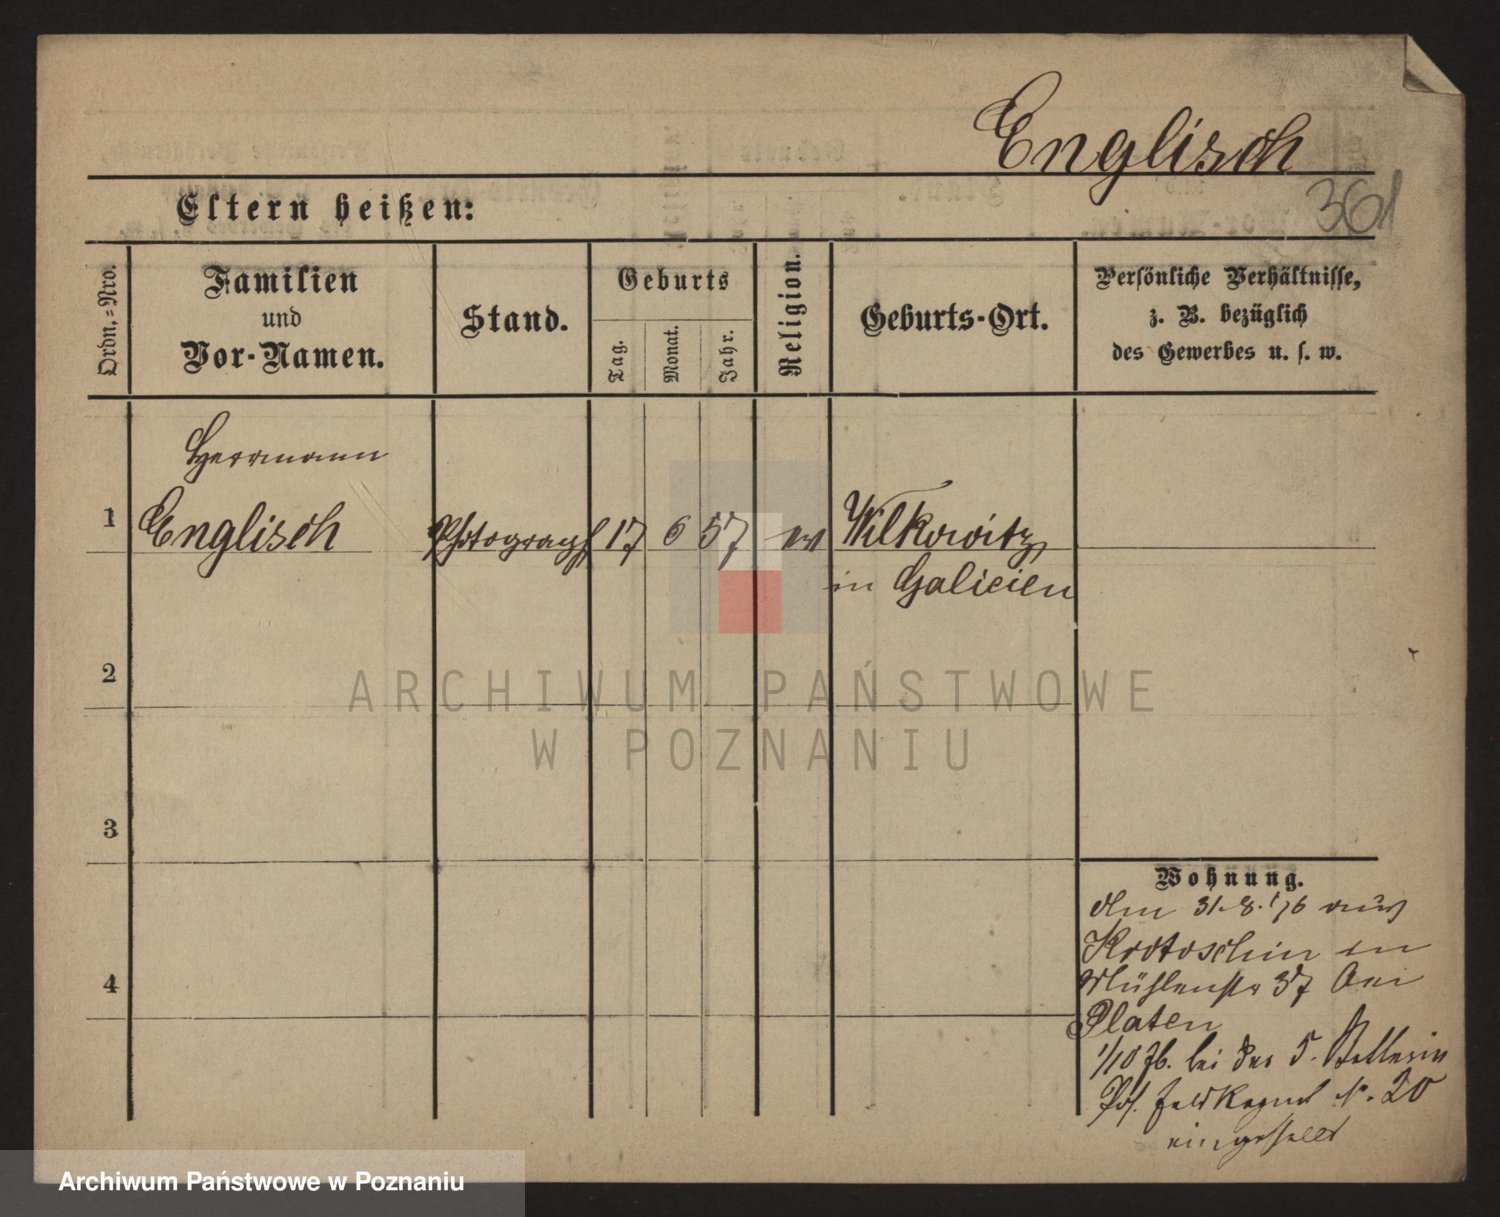 Englisch
361
Eltern heißen:
Ordn.=Nro.
Familien
und
Vor-Namen.
Stand.
Geburts
Tag.
Monat.
Jahr.
Religion.
Geburts-Ort.
Persönliche Verhältnisse,
z. B. bezüglich
des Gewerbes u. s. w.
Herrmann
1 Englisch Photograph 17 6 57 ev Wilkowitz
in Galicien
2
3
4
Wohnung.
31.8.76 aus
Krotoschin in
Mühlenstr 37 bei
Platen
1/10 76. bei der 5.
No. 20
eingestellt
ARCHIWUM PAŃSTWOWE
W POZNANIU
Archiwum Państwowe w Poznaniu